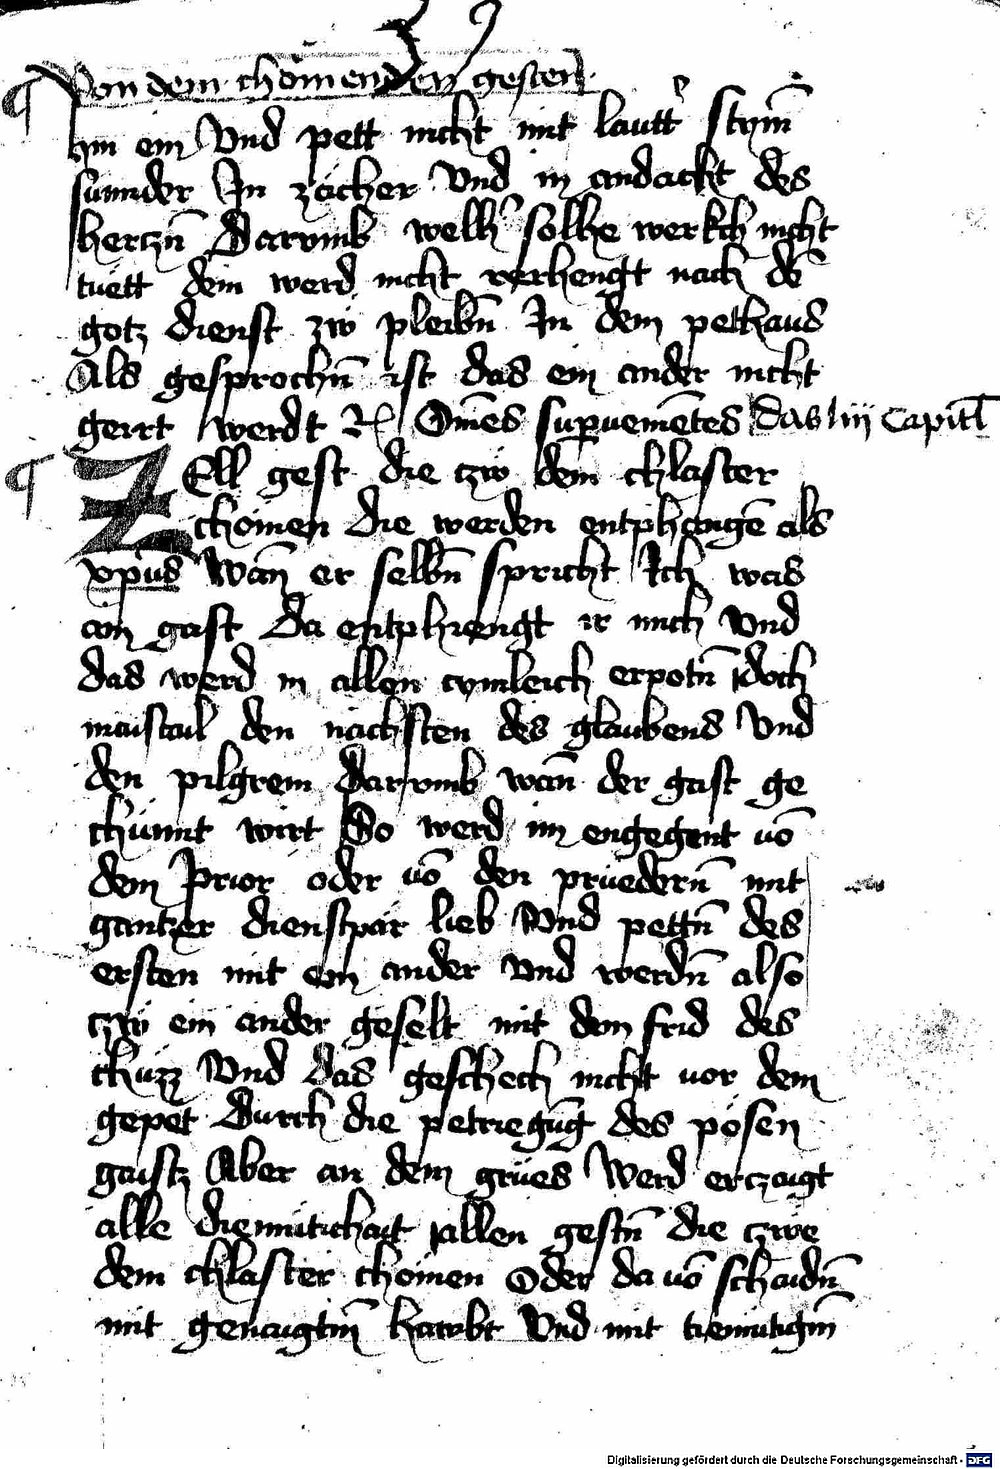 Von dem chomenden gesten
hin ein Vnd pett nicht mit lautt' stym̄
sunnder In zächer Vnd in andacht des
herczn̄ Darvmb welh' solhe werkch nicht
tuett dem werd nicht verhengt nach dē
gotz dienst zw pleibn̄ In dem pethaus
Als gesprochn̄ ist das ein ander nicht
geirrt werdt Om̄es sup̲uenie̅tes das liij Capitl̄
ZEll gest die czw dem chlaster
chömen die werden entphangē als
xp̄us Wan̄ er selbn̄ spricht Ich was
ain gast Da entphiengt ir mich Vnd
das werd in allen czimleich erpotn̄ Idoch
maistail den nachsten des glaubens Vnd
den pilgreim Darvmb wan̄ der gast ge
chümt wirt So werd im engegent vō
dem Prior oder vō den prüedern̄ mit
gantzer dienstpär lieb Vnd pettn̄ des
ersten mit ein ander Vnd werdn̄ also
czw ein ander geselt mit dem frid des
chuzz Vnd das geschech nicht vor dem
gepet Durch die petriegūg des pösen
gaistz Aber an dem grües Werd erczaigt
alle diemütichait allen gestn̄ die czwe
dem chlaster chömen Oder da vō schaidn̄
mit genaigtm̄ hawbt Vnd mit tiemütigm̄
Digitalisierung gefördert durch die Deutsche Forschungsgemeinschaft - DFG